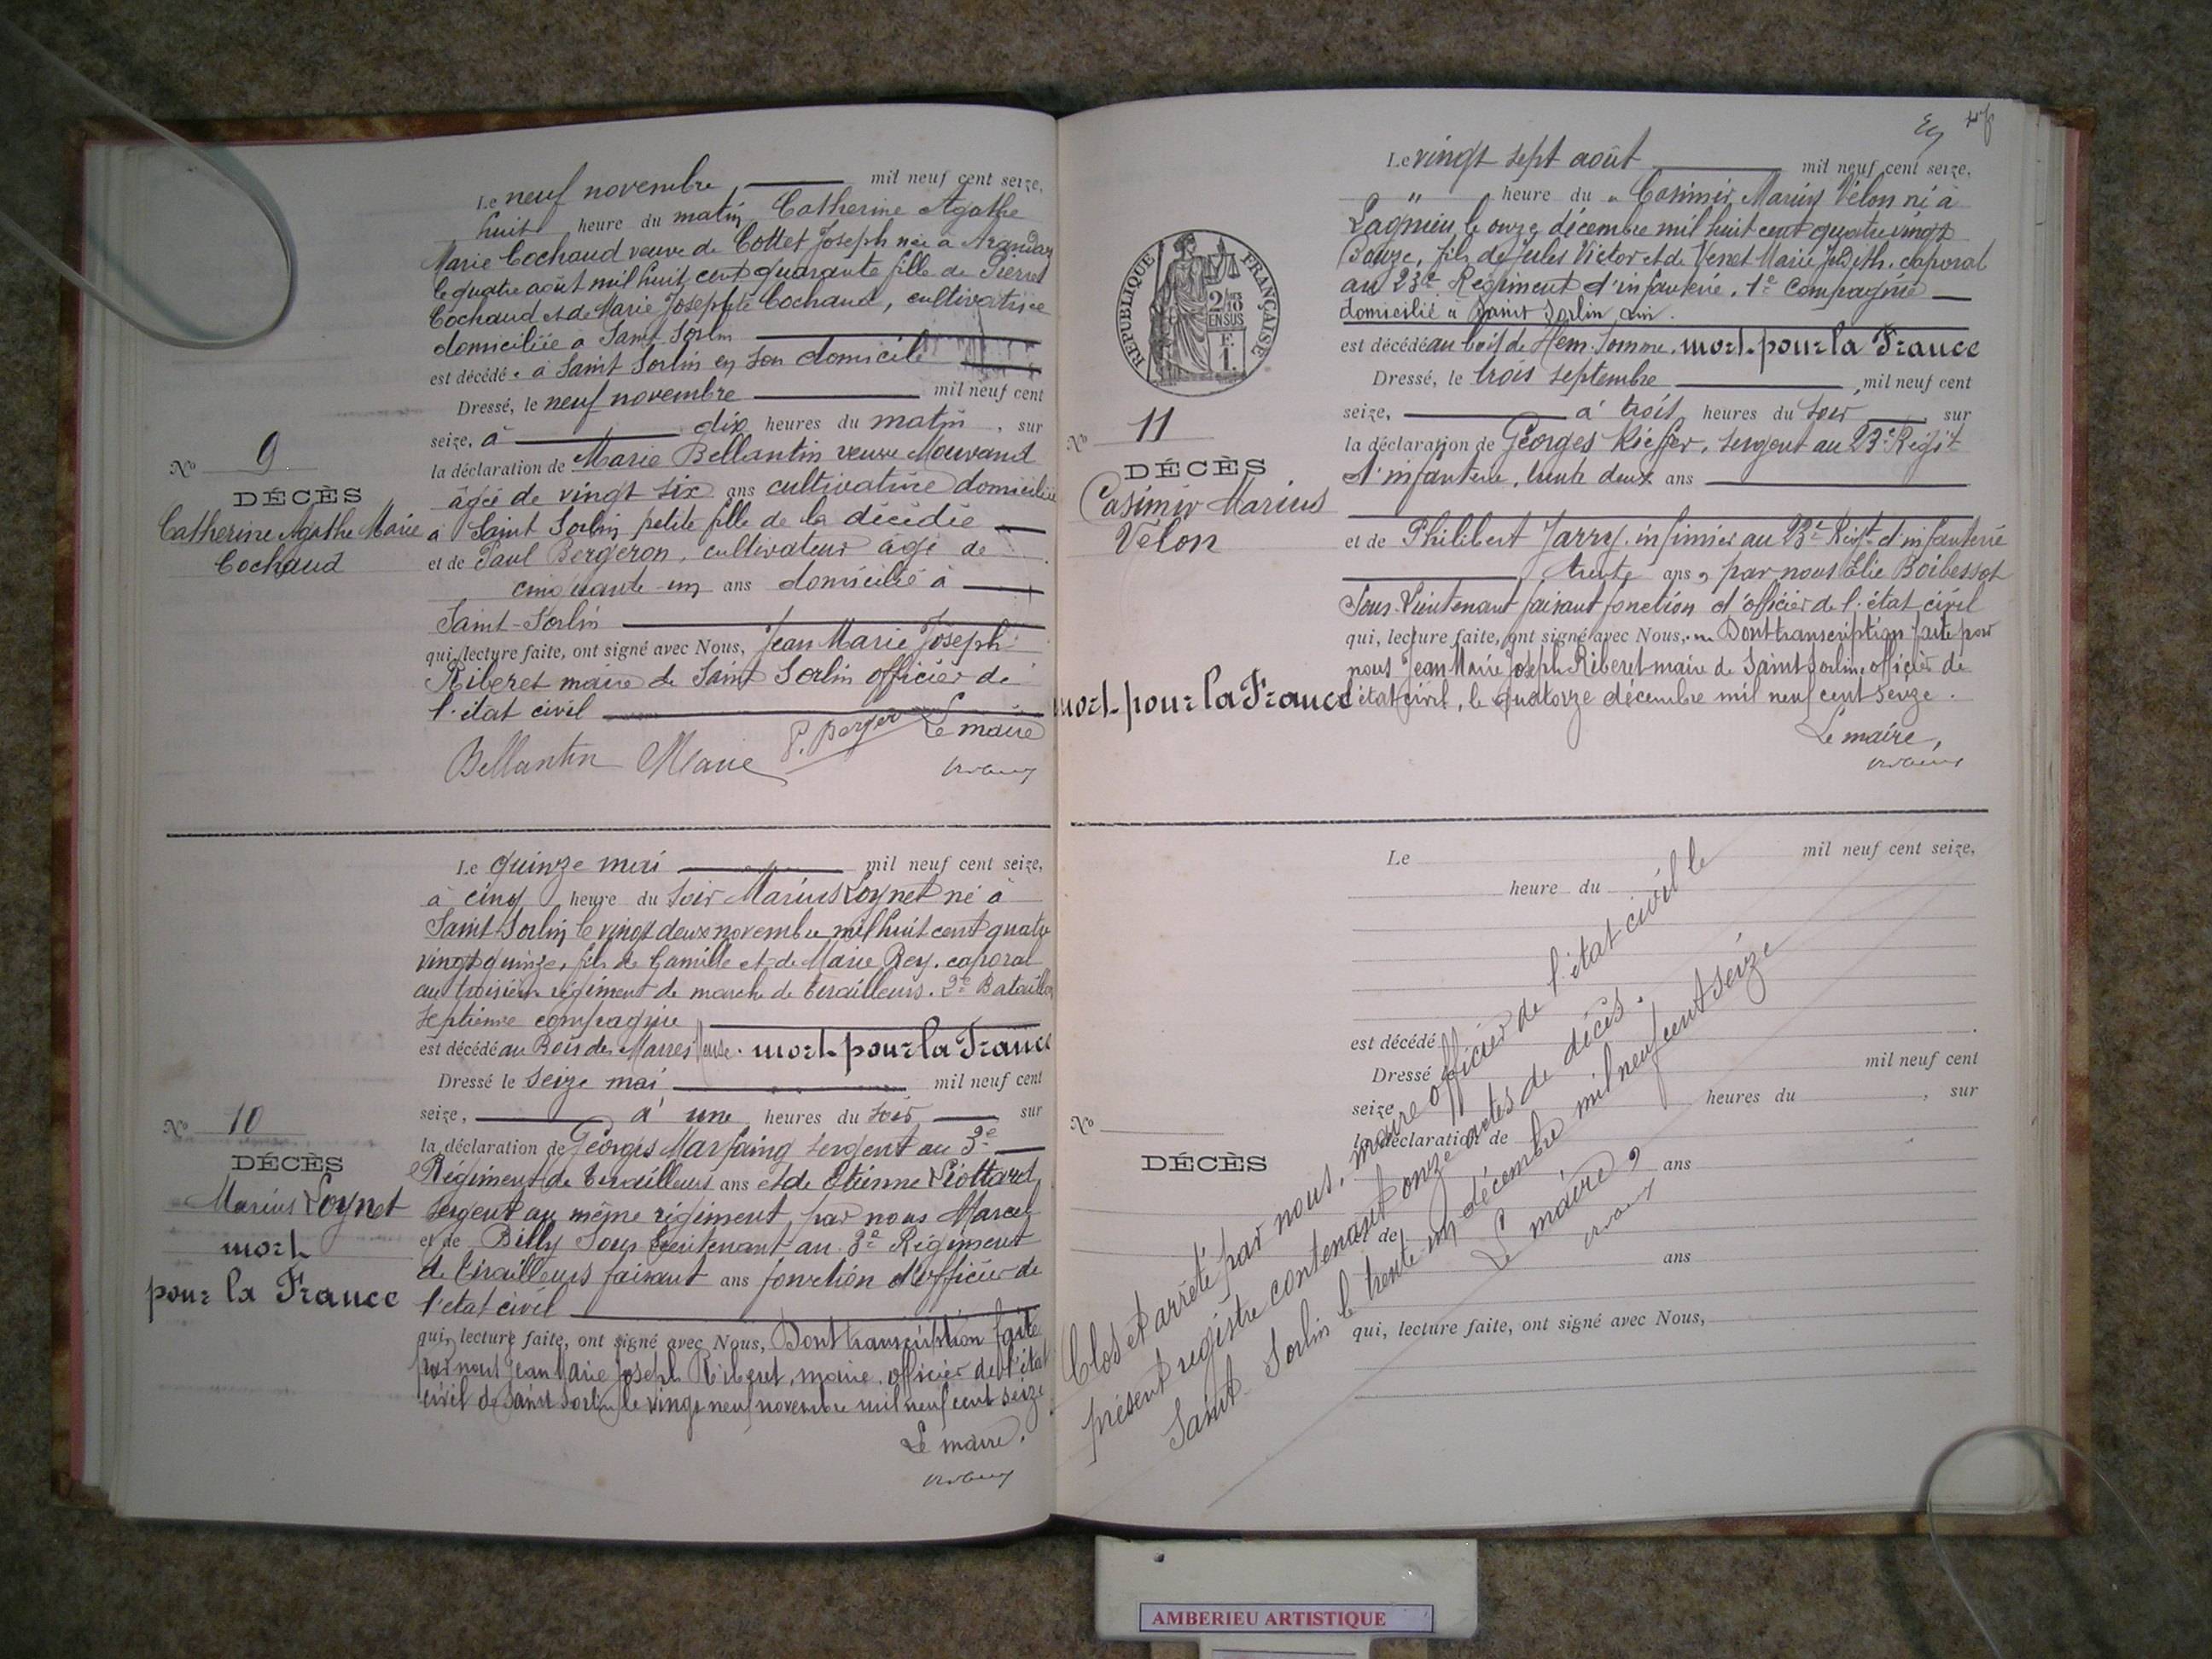 Le neuf novembre mil neuf cent seize,
huit heure du matin Catherine Agathe
Marie Cochaud veuve de Cottet Joseph née à Arandas
le quatre août mil huit cent quarante fille de Pierre
Cochaud et de Marie Josephte Cochaud, cultivatrice
domiciliée à Saint Sorlin
est décédée à Saint Sorlin en son domicile
Dressé, le neuf novembre mil neuf cent
seize, à dix heures du matin, sur
la déclaration de Marie Bellantin veuve Mouvand
âgée de vingt six ans cultivatrice domiciliée
à Saint Sorlin petite fille de la décédée
et de Paul Bergeron, cultivateur âgé de
cinquante-un ans domicilié à
Saint-Sorlin
qui, lecture faite, ont signé avec Nous, Jean Marie Joseph
Riberet maire de Saint Sorlin officier de
l'état civil
Le maire
Bellantin Marie P. Berger
No 9
DÉCÈS
Catherine Agathe Marie
Cochaud
Le quinze mai mil neuf cent seize,
à cinq heure du soir Marius Loynet né à
Saint Sorlin le vingt deux novembre mil huit cent quatre
vingt quinze, fils de Camille et de Marie Rey, caporal
au troisième régiment de marche de tirailleurs. 2e Bataillon
septième compagnie
est décédé au Bois des Marres Meuse. mort pour la France
Dressé le seize mai mil neuf cent
seize, à une heures du soir sur
la déclaration de Georges Marfaing sergent au 3e
Régiment de tirailleurs ans et de Etienne Piottard,
sergent au même régiment, par nous Marcel
et de Billy Sous Lieutenant au 3e Régiment
de tirailleurs faisant ans fonction d'officier de
l'état civil
qui, lecture faite, ont signé avec Nous, Dont transcription faite
par nous Jean Marie Joseph Riberet, maire, officier de l'état
civil de Saint Sorlin le vingt neuf novembre mil neuf cent seize
Le maire.
No 10
DÉCÈS
Marius Loynet
mort
pour la France
Le vingt sept août mil neuf cent seize,
" heure du " Casimir Marius Vélon né à
Lagnieu le onze décembre mil huit cent quatre vingt
douze, fils de Jules Victor et de Venet Marie Judith, caporal
au 23e Régiment d'infanterie, 1e Compagnie
domicilié à Saint Sorlin Ain.
est décédé au bois de Hem. Somme. mort pour la France
Dressé, le trois septembre, mil neuf cent
seize, à trois heures du soir, sur
la déclaration de Georges Kieffer, sergent au 23e Régit
d'infanterie, trente deux ans
et de Philibert Jarry, infirmier au 23e Régt d'infanterie
trente ans, par nous Elie Boibessot
Sous-Lieutenant faisant fonction d'officier de l'état civil
qui, lecture faite, ont signé avec Nous, Dont transcription faite par
nous Jean Marie Joseph Riberet maire de Saint Sorlin officier de
l'état civil, le quatorze décembre mil neuf cent seize.
Le maire,
RÉPUBLIQUE FRANÇAISE
2/10
EN SUS
F.
1.
No 11
DÉCÈS
Casimir Marius
Vélon
mort pour la France
Le mil neuf cent seize,
heure du
est décédé
Dressé le mil neuf cent
seize heures du , sur
la déclaration de
ans
et de
ans
qui, lecture faite, ont signé avec Nous,
No
DÉCÈS
Clos et arrêté par nous, maire officier de l'état civil le
présent registre contenant onze actes de décès.
Saint-Sorlin le trente un décembre mil neuf cent seize
Le maire,
AMBERIEU ARTISTIQUE